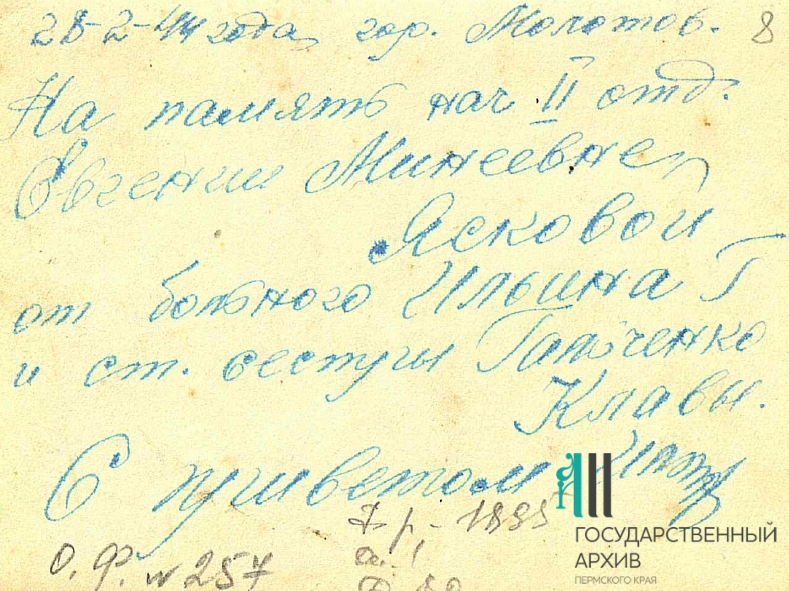 28-2-44 года, гор. Молотов. 8
На память нач. II отд.
Евгении Минеевне
Ясковой
от больного Ильина Г
и ст. сестры
Клавы.
С приветом
О. Ф. № 257
ф. р, - 1895
ГОСУДАРСТВЕННЫЙ
АРХИВ
ПЕРМСКОГО КРАЯ